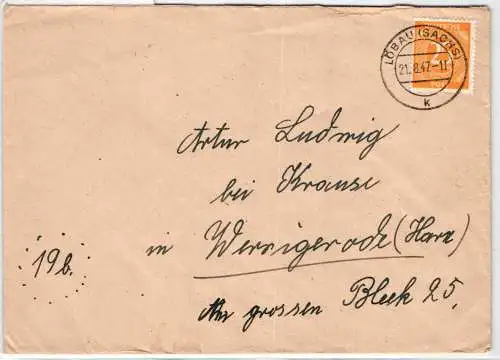 LÖBAU (SACHS)
21.8.47-11
k
Artur Ludwig
bei Krause
in Wernigerode (Harz)
19b.
Am grossen Bleek 25.